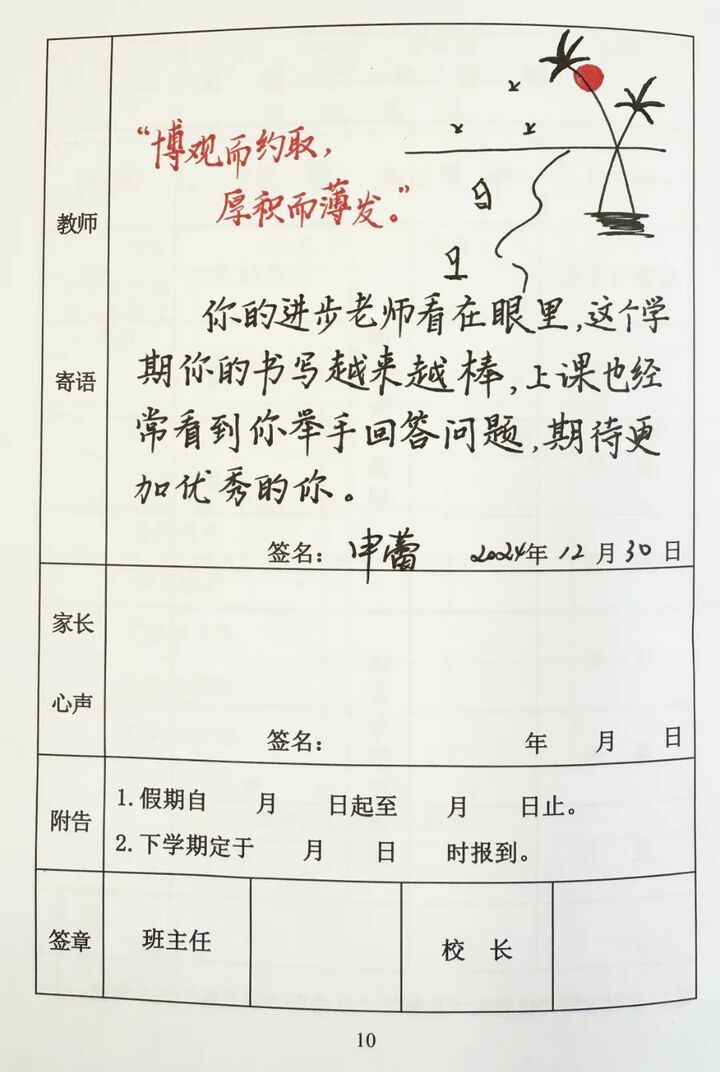 教师
寄语
“博观而约取，
厚积而薄发。”
你的进步老师看在眼里，这个学
期你的书写越来越棒，上课也经
常看到你举手回答问题，期待更
加优秀的你。
签名：申蕾 2024年12月30日
家长
心声
签名： 年 月 日
附告
1.假期自 月 日起至 月 日止。
2.下学期定于 月 日 时报到。
签章 班主任 校 长
10